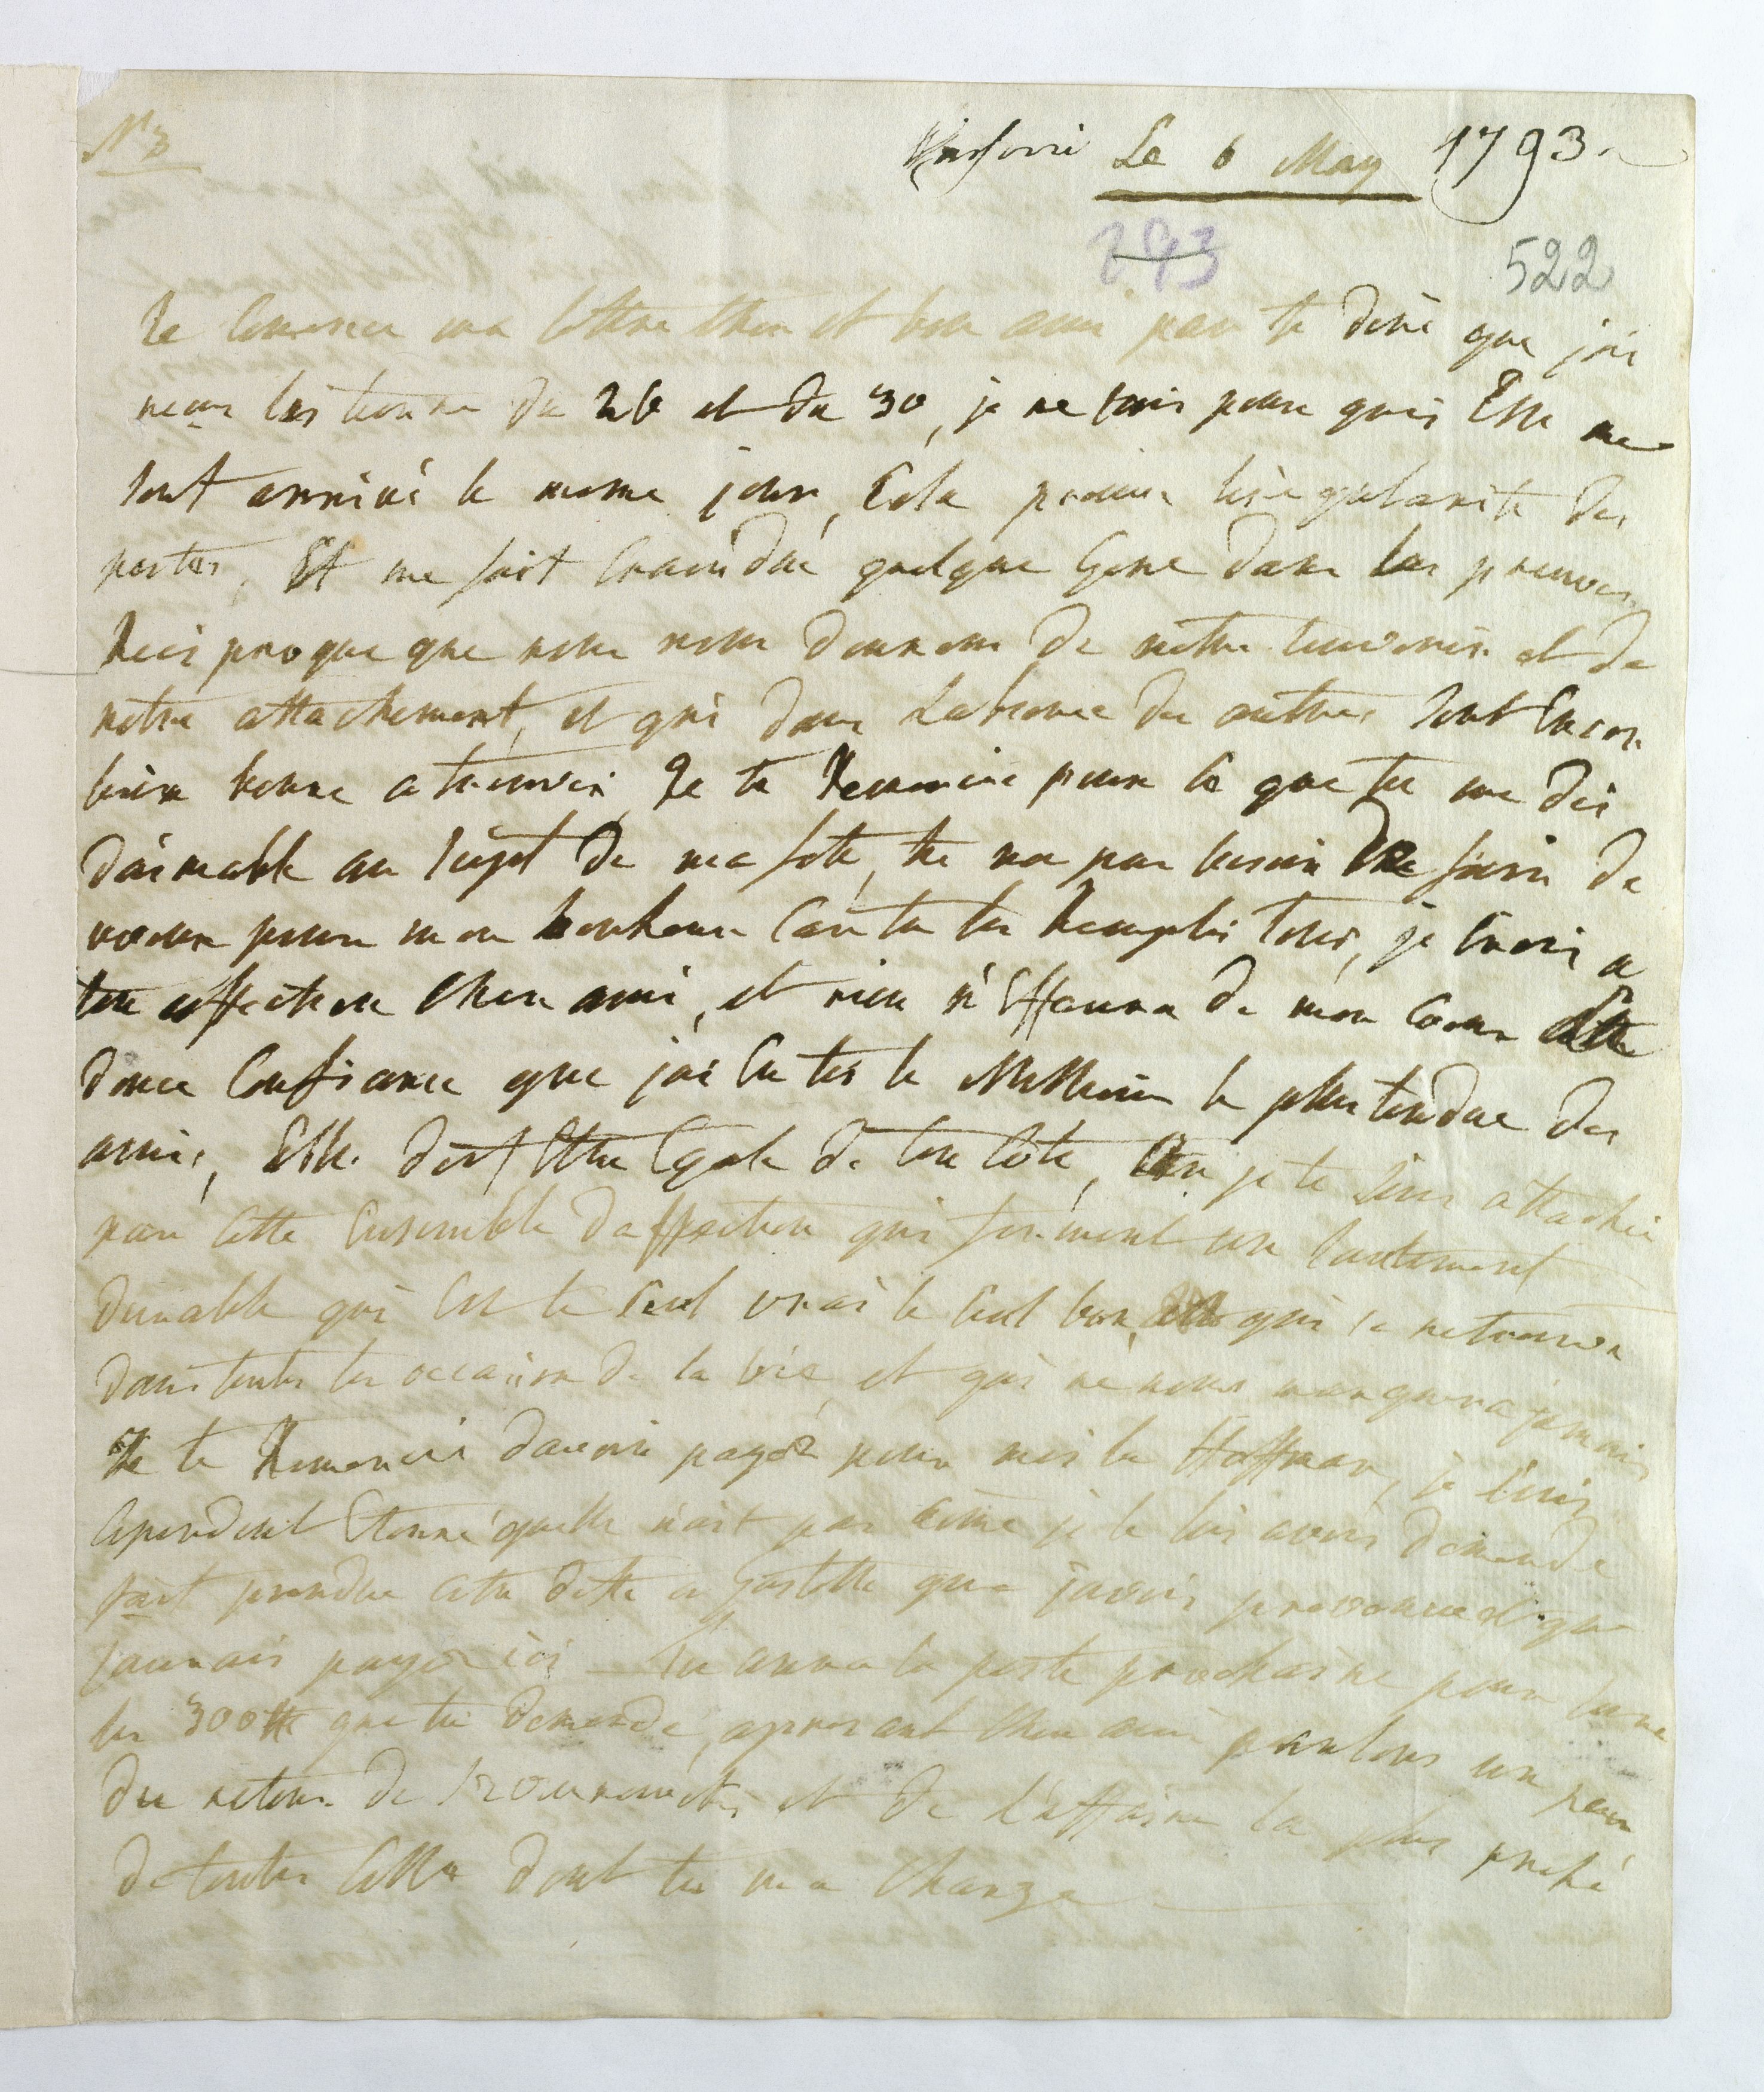 N° 3
Varsovie Le 6 May 1793.
293
522
Je Comence ma lettre cher et bon ami par te dire que jai
recu les tienne du 26 et du 30, je ne sais pour quoi Elle me
sont arrivé le meme jour, Cela prouve liregularite des
postes, Et me fait Craindre quelque Gene dans les preuves
Reciproque que nous nous donnons de notre souvenir et de
notre attachement, et qui dans Labsence des autres sont Encor
bien bonne a trouver, Je te Remercie pour ce que tu me dis
daimable au sujet de ma fete, tu na pas besoin de faire de
voeux pour mon bonheur Car tu les Remplis tous, je Crois a
ton affection cher ami, et rien n'Effacera de mon Coeur Cette
douce Confiance que jai En toi le Meilleur le plus tendre des
amis, Elle doit Etre Egale de ton Coté, Car je te suis attaché
par Cette Ensemble daffection qui forment un sentiment
durable qui Est le seul vrai le seul bon, qui se retrouve
dans toutes les occasion de la vie et qui ne nous manquera jamais
Je te Remercie davoir payer pour moi la Hoffman, je suis
Cependent Etonné quelle n'ait pas come je le lui avois demandé
fait prendre cette dette a que javois prevenue et que
jaurais payer ici — Tu aura la poste prochaine pour sure
les 300# que tu demende, apresant cher ami parlons un peu
du retour de et de L'affaire la plus
de toutes Celle dont tu ma charge